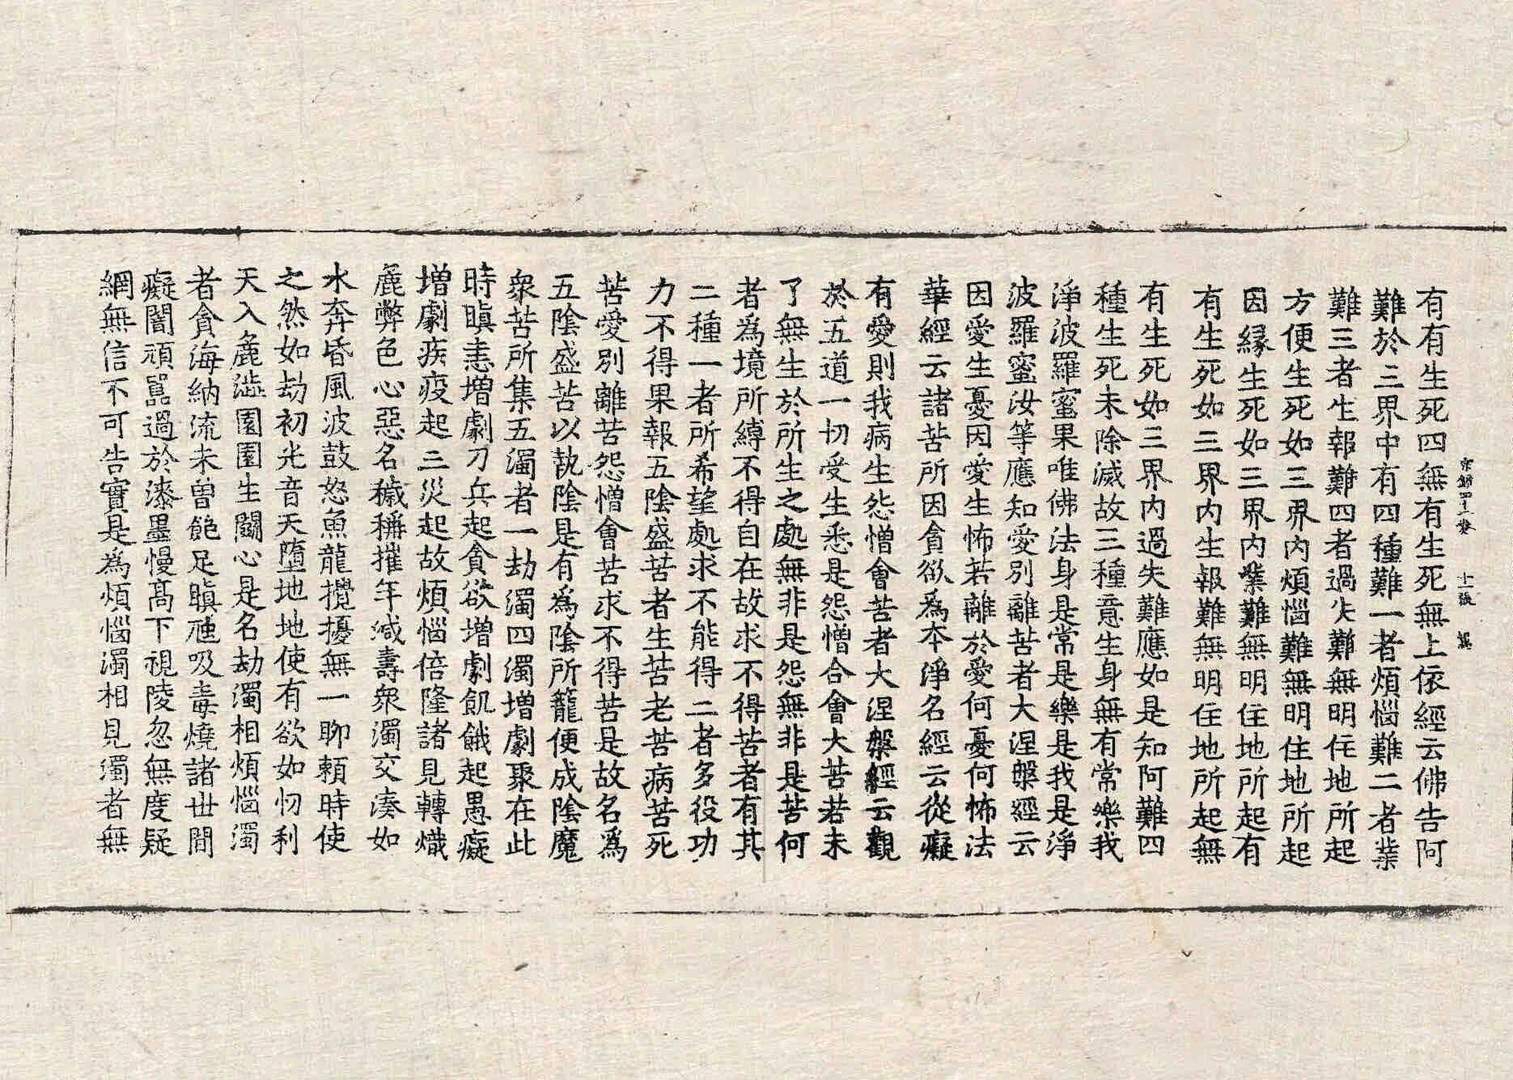 有有生死四無有生死無上依經云佛告阿
難於三界中有四種難一者煩惱難二者業
難三者生報難四者過失難無明住地所起
方便生死如三界內煩惱難無明住地所起
因緣生死如三界內業難無明住地所起有
有生死如三界內生報難無明住地所起無
有生死如三界內過失難應如是知阿難四
種生死未除滅故三種意生身無有常樂我
淨波羅蜜果唯佛法身是常是樂是我是淨
波羅蜜汝等應知愛別離苦者大涅槃經云
因愛生憂因愛生怖若離於愛何憂何怖法
華經云諸苦所因貪欲為本淨名經云從癡
有愛則我病生怨憎會苦者大涅槃經云觀
於五道一切受生悉是怨憎合會大苦若未
了無生於所生之處無非是怨無非是苦何
者為境所縛不得自在故求不得苦者有其
二種一者所希望處求不能得二者多役功
力不得果報五陰盛苦者生苦老苦病苦死
苦愛別離苦怨憎會苦求不得苦是故名為
五陰盛苦以執陰是有為陰所籠便成陰魔
眾苦所集五濁者一劫濁四濁增劇聚在此
時瞋恚增劇刀兵起貪欲增劇飢餓起愚癡
增劇疾疫起三災起故煩惱倍隆諸見轉熾
麁弊色心惡名穢稱摧年減壽眾濁交湊如
水奔昏風波鼓怒魚龍攪擾無一聊賴時使
之然如劫初光音天墮地地使有欲如忉利
天入麁澁園園生鬭心是名劫濁相煩惱濁
者貪海納流未曾飽足瞋虺吸毒燒諸世間
癡闇頑嚚過於漆墨慢高下視陵忽無度疑
網無信不可告實是為煩惱濁相見濁者無